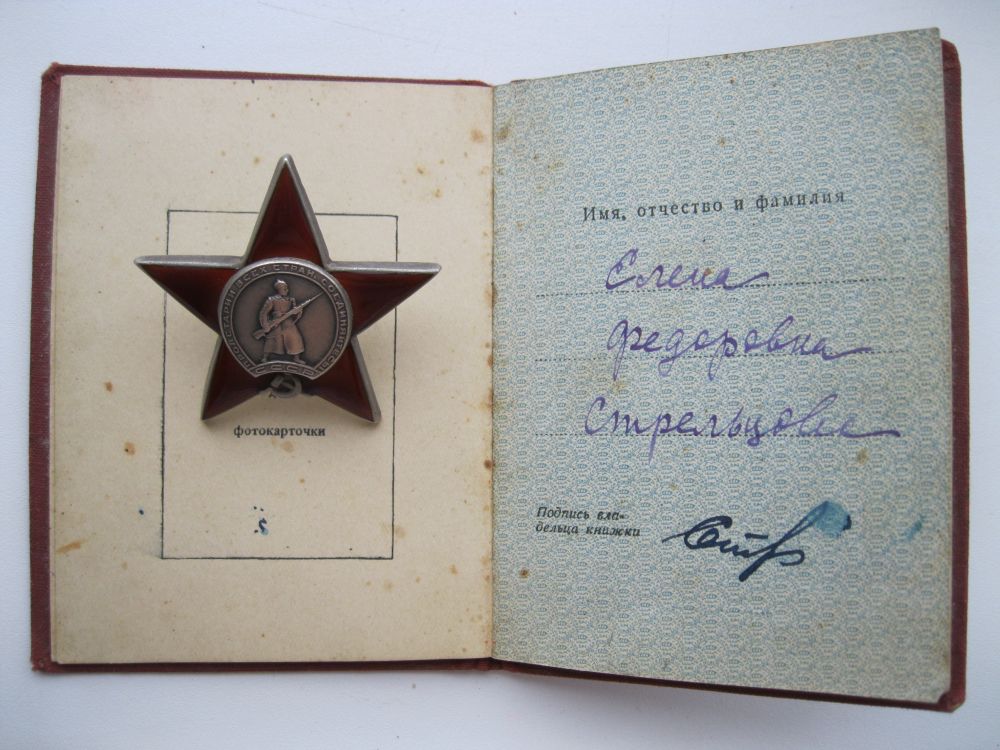 ПРОЛЕТАРИИ ВСЕХ СТРАН, СОЕДИНЯЙТЕСЬ!
СССР
фотокарточки
Имя, отчество и фамилия
Елена
Федоровна
Стрельцова
Подпись вла-
дельца книжки
Стр